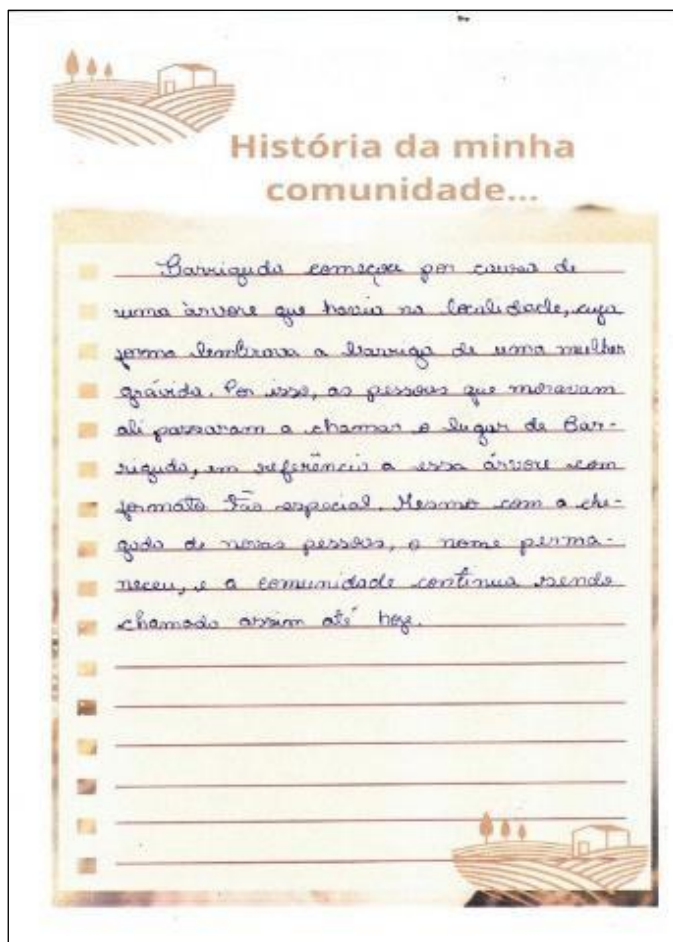 História da minha
comunidade...
Barriguda começou por causa de
uma àrvore que havia na localidade, cuja
forma lembrava a barriga de uma mulher
grávida. Por isso, as pessoas que moravam
ali passaram a chamar o lugar de Bar-
riguda, em referência a essa árvore com
formato tão especial. Mesmo com a che-
gada de novas pessoas, o nome perma-
neceu, e a comunidade continua sendo
chamada assim até hoje.